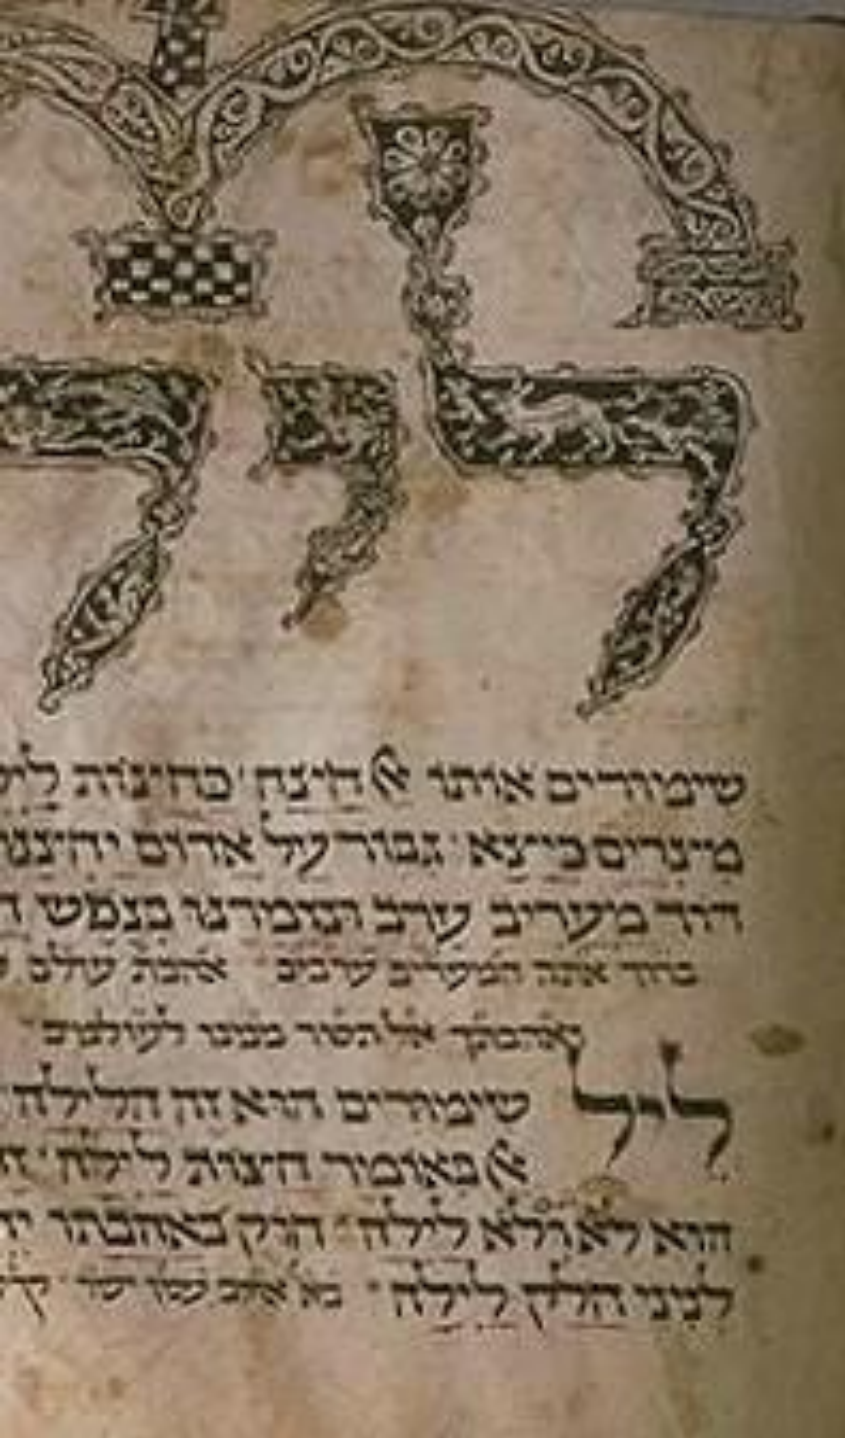 ליל
שימורים אותו אל חיצה כחצות ליל
מיצרים כי יצא גבור על אדום יחיצנו
מעריב ערב בנפש
ברוך אתה המעריב ערבים אהבת עולם
ואהבתך אל תסור ממנו לעולמים
ליל שימורים הוא זה הלילה
אל באומר חצות לילה
הוא לא ולא לילה באהבתו
לניני חלק לילה